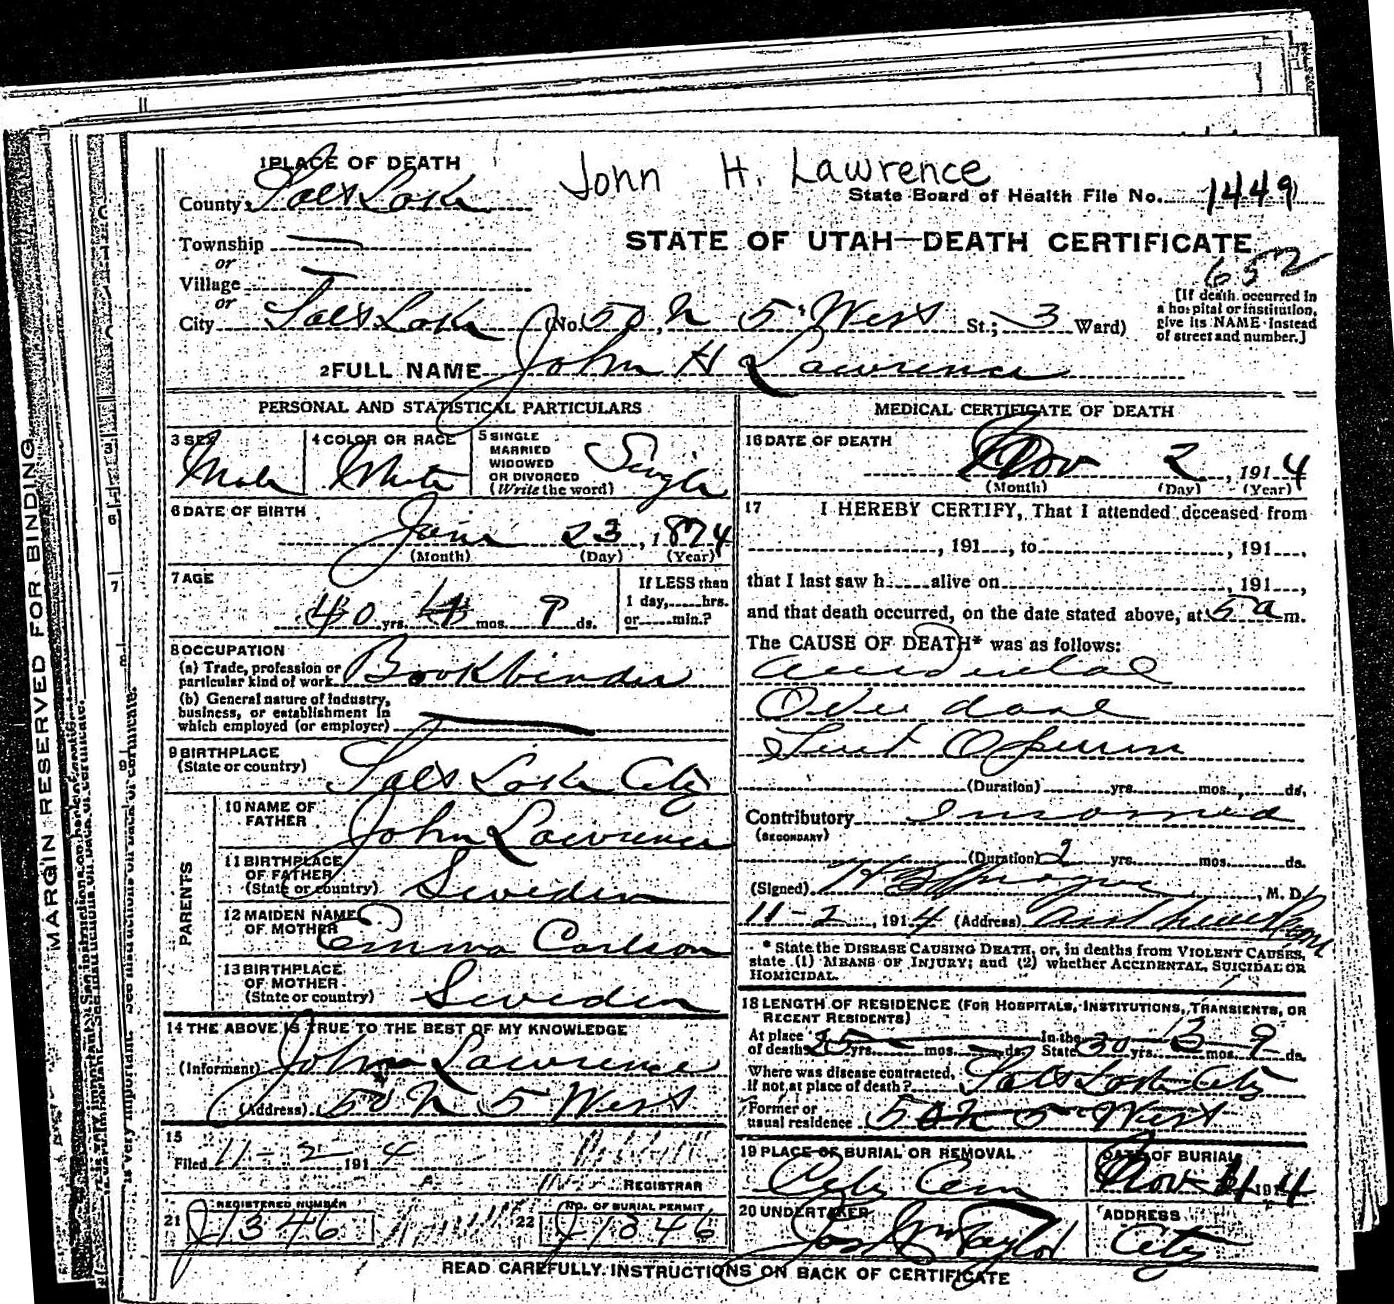 John H. Lawrence
1 PLACE OF DEATH
County Salt Lake
State Board of Health File No. 1449
Township
or
STATE OF UTAH—DEATH CERTIFICATE
652
Village
or
[If death occurred in a hospital or institution, give its NAME instead of street and number.]
City Salt Lake (No. 50 N 5 West St.; 3 Ward)
2 FULL NAME John H Lawrence
PERSONAL AND STATISTICAL PARTICULARS
3 SEX Male
4 COLOR OR RACE White
5 SINGLE
MARRIED
WIDOWED
OR DIVORCED
(Write the word) Single
6 DATE OF BIRTH
Jan 23, 1874
(Month) (Day) (Year)
7 AGE
40 yrs. mos. 9 ds.
If LESS than
1 day, hrs.
or min.?
8 OCCUPATION
(a) Trade, profession or
particular kind of work Bookbinder
(b) General nature of industry,
business, or establishment in
which employed (or employer)
9 BIRTHPLACE
(State or country) Salt Lake City
PARENTS
10 NAME OF
FATHER John Lawrence
11 BIRTHPLACE
OF FATHER
(State or country) Sweden
12 MAIDEN NAME
OF MOTHER Emma Carlson
13 BIRTHPLACE
OF MOTHER
(State or country) Sweden
14 THE ABOVE IS TRUE TO THE BEST OF MY KNOWLEDGE
(Informant) John Lawrence
(Address) 50 N 5 West
15
Filed 11-2- 1914
REGISTRAR
21 REGISTERED NUMBER J1346
22 NO. OF BURIAL PERMIT J1346
MEDICAL CERTIFICATE OF DEATH
16 DATE OF DEATH
Nov 2, 1914
(Month) (Day) (Year)
17 I HEREBY CERTIFY, That I attended deceased from
, 191 , to , 191 ,
that I last saw h alive on , 191 ,
and that death occurred, on the date stated above, at 5 a m.
The CAUSE OF DEATH* was as follows:
Accidental
Over dose
Opium
(Duration) yrs. mos. ds.
Contributory Insomnia
(SECONDARY)
(Duration) 2 yrs. mos. ds.
(Signed) H B Sprague, M. D.
11-2, 1914 (Address)
* State the DISEASE CAUSING DEATH, or, in deaths from VIOLENT CAUSES,
state (1) MEANS OF INJURY; and (2) whether ACCIDENTAL, SUICIDAL OR
HOMICIDAL.
18 LENGTH OF RESIDENCE (FOR HOSPITALS, INSTITUTIONS, TRANSIENTS, OR
RECENT RESIDENTS)
At place
of death 25 yrs. mos. ds. In the
State 30 yrs. mos. 9 ds.
Where was disease contracted,
if not at place of death? Salt Lake City
Former or
usual residence 50 N 5 West
19 PLACE OF BURIAL OR REMOVAL
City Cem
DATE OF BURIAL
Nov 1914
20 UNDERTAKER
Jos Wm Taylor
ADDRESS
City
READ CAREFULLY INSTRUCTIONS ON BACK OF CERTIFICATE
MARGIN RESERVED FOR BINDING